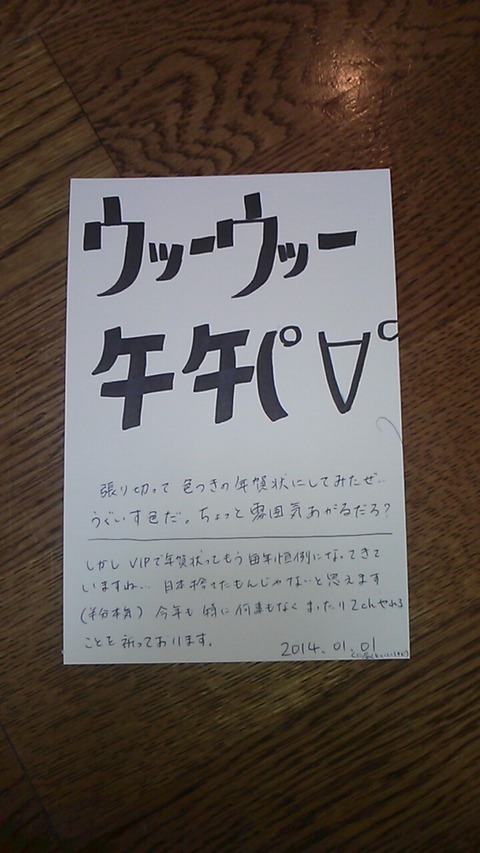 ウッーウッー
午午(゚∀゚
張り切って色つきの年賀状にしてみたぜ..
うぐいす色だ。ちょっと雰囲気あがるだろ?
しかしVIPで年賀状ってもう毎年恒例になってきて
いますね... 日本捨てたもんじゃないと思えます
(半分本気) 今年も特に何事もなくまったり2chやれる
ことを祈っております。
2014.01.01